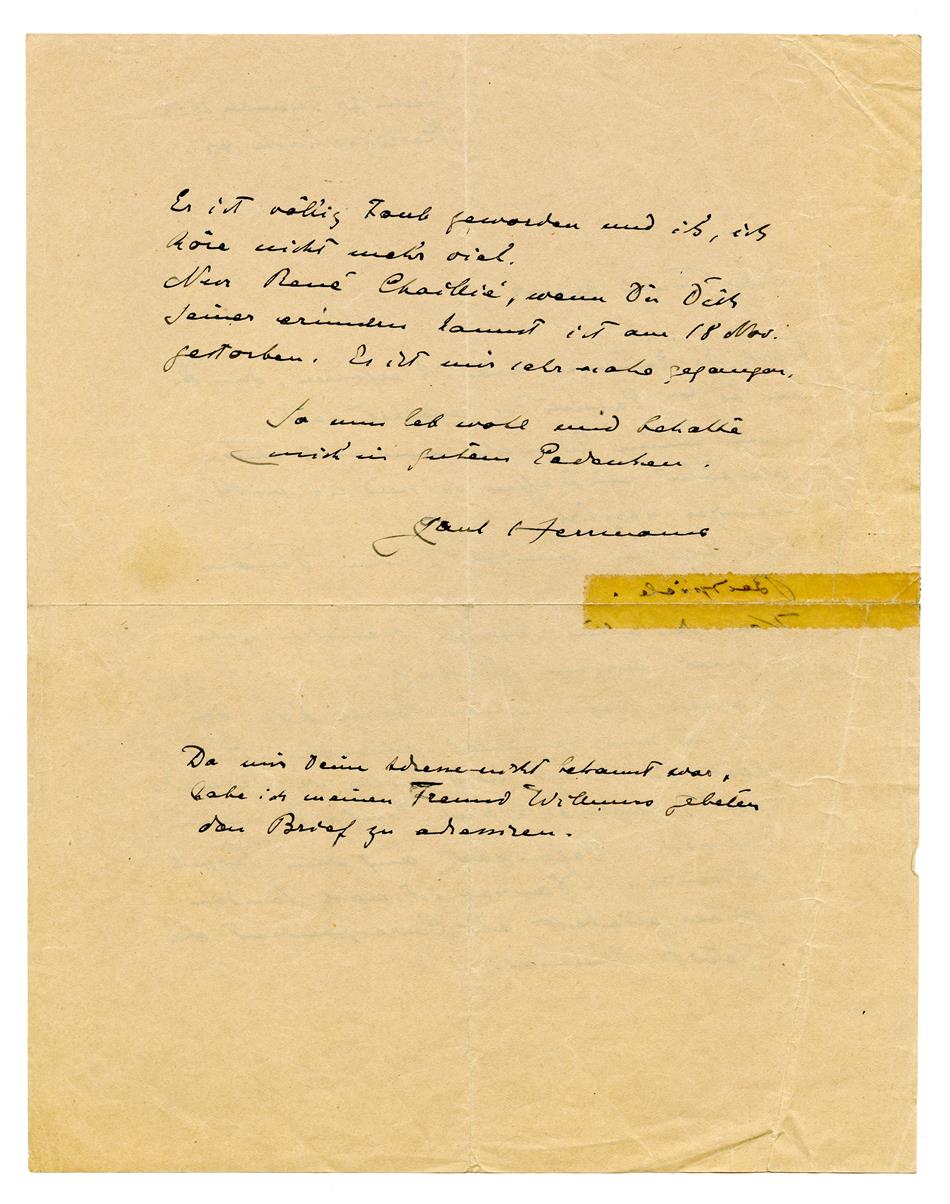 Er ist völlig Taub geworden und ich, ich
höre nicht mehr viel.
Nur René Chaillié, wenn Du Dich
seiner erinnern kannst ist am 18 Nov.
gestorben. Es ist mir sehr nahe gegangen.
So nun leb wohl und behalte
mich in gutem Gedenken.
Paul Hermans
Da mir deine Adresse nicht bekannt war,
habe ich meinen Freund Willems gebeten
den Brief zu adressiren.